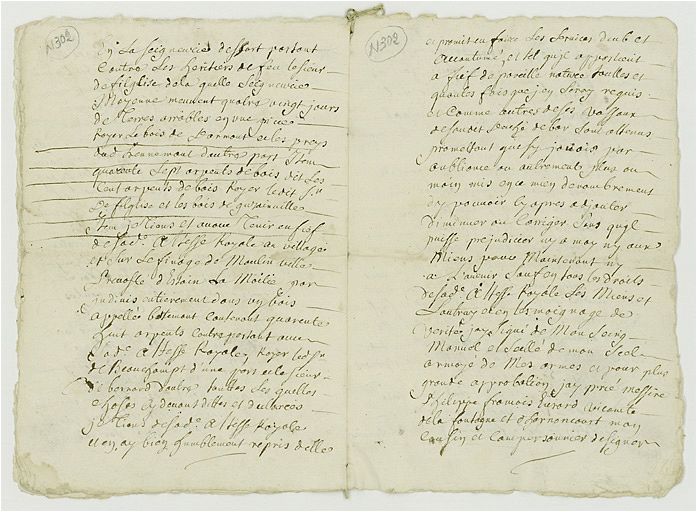 N 302
La Seigneurie desfort partant
Contre Les heritiers de feu le sieur
de filglise de la quelle Seigneurie
Moyenne meuvent quatre vingt jours
de Terres arrables en une piece
Royer Le bois de Darmont et les preys
de Rennemont d'autre part Item
quarente Sept arpents de bois dit Les
Cent arpents de bois Royer ledit Sr
de filglise et les bois de
Item je Tiens et avoue Tenir en fief
de sad. Altesse Royale au village
et sur Le finage de Moulin ville
Prevosté d'Estain La Moitié par
indivis entierement dans un bois
appellé contenant quarente
huit arpents Contre partant avec
Sad. Altesse Royale Royer led. Sr
de Beauchampt d'une part et le sieur
de bernard d'autre Toutes Les quelles
choses cy devant dittes et
je Tiens de sad. Altesse Royale
et en ay bien humblement repris d'elle
N 302
et promit en faire Les Services deub et
accoutumé, et tel qu'il appartient
a fief de pareille nature Toultes et
quantes fois que j'en seray requis
et Comme autres de ses Vassaux
desdit Duché de bar sont attenus
promettant que s'y j'avois par
oubliance ou autrement plus ou
moin mis que mon denombrement
d'y pouvoir cy apres adjouter
diminuer ou Corriger Sans qu'il
puisse prejudicier ny a moy ny aux
Miens pour Maintenant ny
a L'avenir Sauf en tous les Droits
de sad. Altesse Royale Les Miens et
L'autruy et en tesmoignage de
verité j'ay signé de Mon Seing
Manuel et Scellé de mon Scel
armoyé de Mes armes et pour plus
grande approbation j'ay prié messire
Philippe francois Evrard vicomte
de la fontagne et d'harnoncourt mon
Cousin et Compersonnier de signer